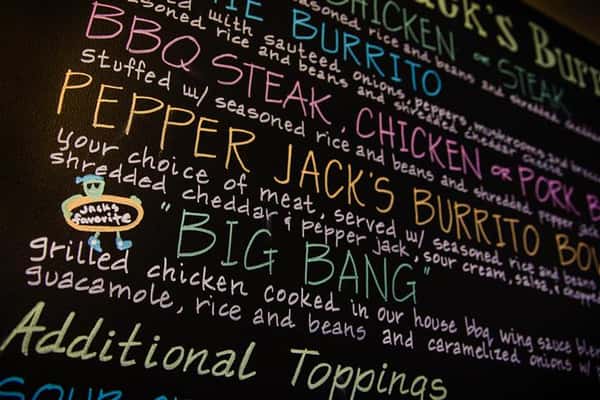 Jack's Burr
CHICKEN OR STEAK
seasoned rice and beans and shredded
IE BURRITO
with sauteed onions, peppers, mushrooms, and
seasoned rice and beans and shredded cheddar cheese
BBQ STEAK, CHICKEN OR PORK B
stuffed w/ seasoned rice and beans and shredded pepper jack
PEPPER JACK'S BURRITO BOW
your choice of meat, served w/ seasoned rice and beans
shredded cheddar & pepper jack, sour cream, salsa, & chopped
Jacks
favorite
"BIG BANG"
grilled chicken cooked in our house bbq, wing sauce blen
guacamole, rice and beans and caramelized onions w/
Additional Toppings
SOUR